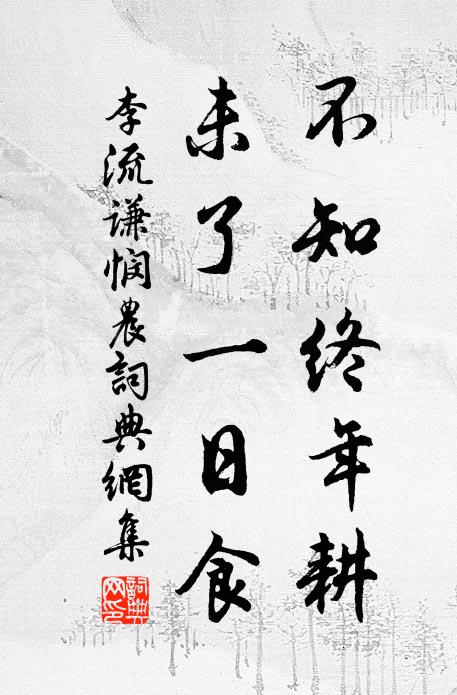 不知终年耕
未了一日食
李流谦悯农詞典網集
詞典网印